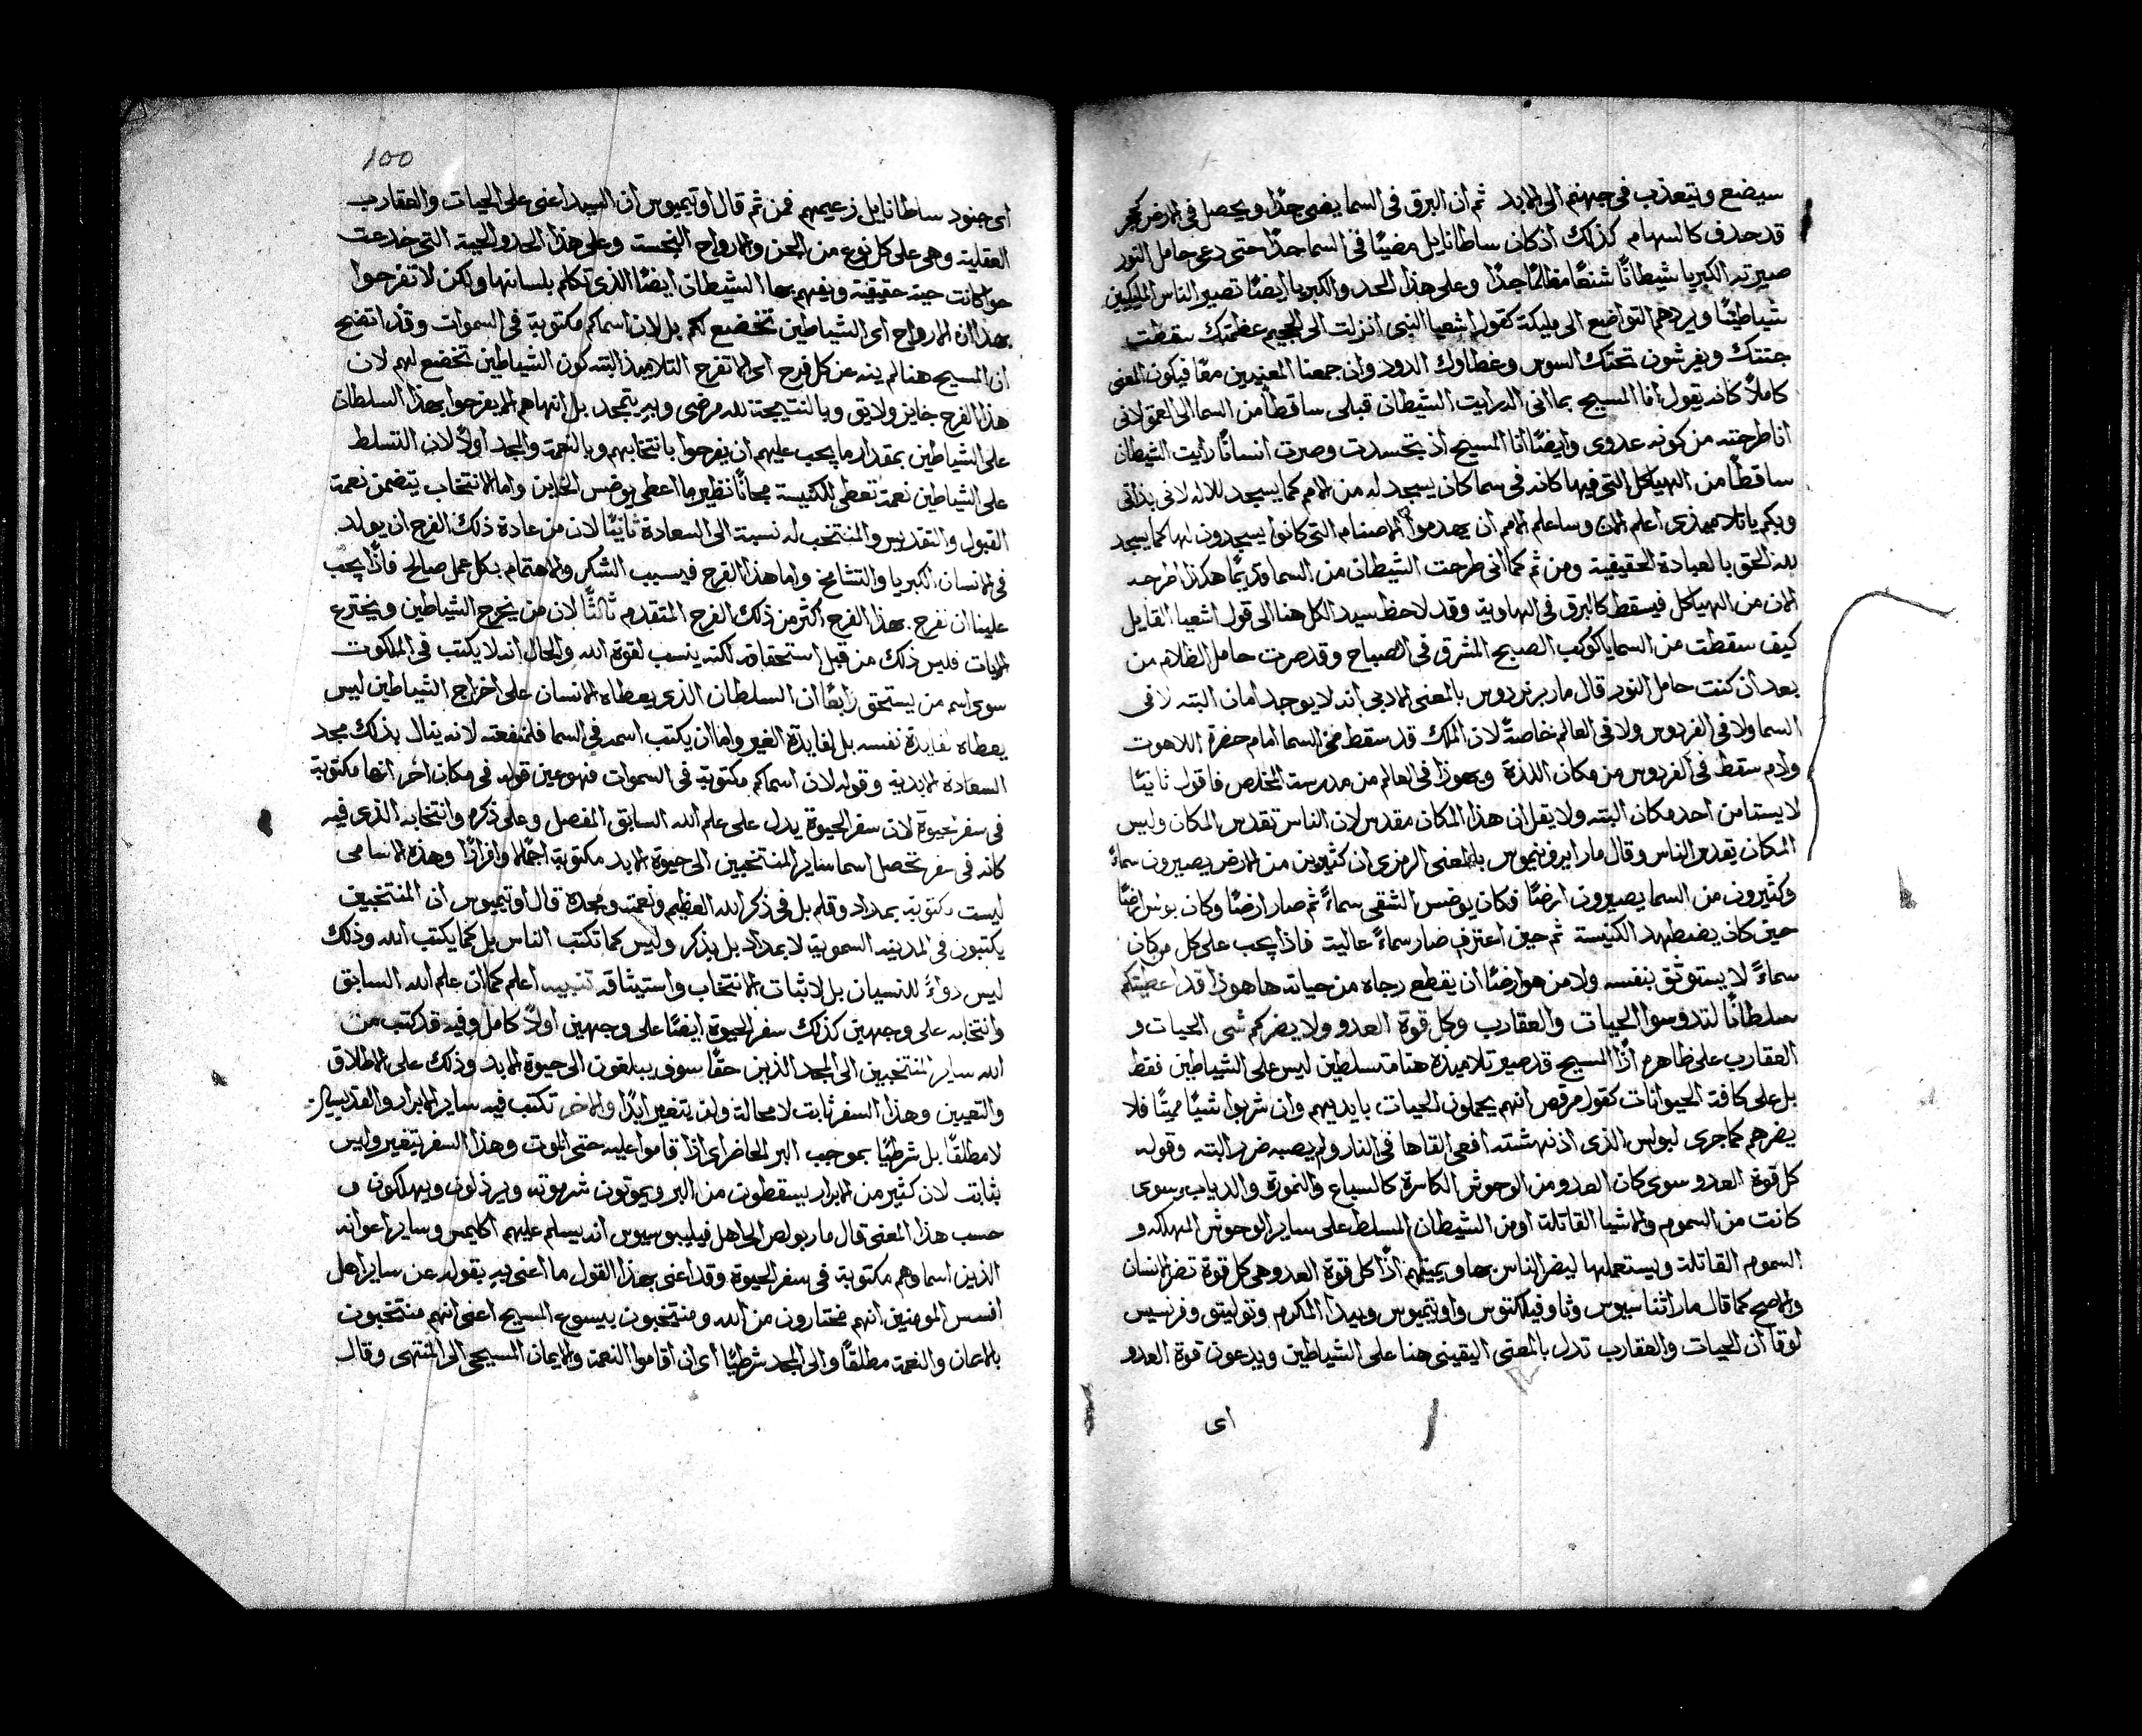 سيضع ويتعذب في جهنم الى الابد ثم ان البرق في السما يضى جدًا ويحصل في الارض كحجر
قد حدف كالسهام كذلك اذ كان ساطانايل مضيًا في السما جدًا حتى دعى حامل النور
صيرته الكبريا شيطانًا شنعًا مظلمًا جدًا وعلى هذا الحد والكبريا ايضًا تصير الناس المليكيين
شياطينًا ويردهم التواضع الى مليكة كقول اشعيا النبى انزلت الى الجحيم عظمتك سقطت
جثتك ويفرشون تحتك السوس وغطاوك الدود وان جمعنا المعنيين معًا فيكون المعنى
كاملاً كانه يقول انا المسيح بما انى اله رايت الشيطان قبلى ساقطًا من السما الى العمق لانى
انا طرحته من كونه عدوى وايضًا انا المسيح اذ تجسدت وصرت انسانًا رايت الشيطان
ساقطًا من الهياكل التى فيها كانه في سما كان يسجد له من الامم كما يسجد للاله لانى بذاتى
وبكم يا تلاميذى اعلم الان وساعلم الامم ان يهدموا الاصنام التى كانوا يسجدون لها كما يسجد
لله الحق بالعبادة الحقيقية ومن ثم كما انى طرحت الشيطان من السما قديمًا هكذا اطرحه
الان من الهياكل فيسقط كالبرق في الهاوية وقد لاحظ سيد الكل هنا الى قول اشعيا القايل
كيف سقطت من السما يا كوكب الصبح المشرق في الصباح وقد صرت حامل الظلام من
بعد ان كنت حامل النور قال مار برنردوس بالمعنى الادبى انه لا يوجد امان البته لا في
السما ولا في الفردوس ولا في العالم خاصةً لان الملك قد سقط من السما امام حضرة اللاهوت
وادم سقط في الفردوس من مكان اللذة ويهوذا في العالم من مدرسة المخلص فاقول ثانيًا
لا يستامن احد مكان البته ولا يقل ان هذا المكان مقدس لان الناس تقدس المكان وليس
المكان يقدس الناس وقال مار ايرونيموس بالمعنى الرمزى ان كثيرين من الارض يصيرون سماءً
وكثيرون من السما يصيرون ارضًا فكان يوضس الشقى سماءً ثم صار ارضًا وكان بولس ارضًا
حين كان يضطهد الكنيسة ثم حين اعترف صار سماءً عالية فاذا يجب على كل من كان
سماءً لا يستوثق بنفسه ولا من هو ارضًا ان يقطع رجاه من حياته ها هوذا قد اعطيتكم
سلطانًا لتدوسوا الحيات والعقارب وكل قوة العدو ولا يضركم شى الحيات و
العقارب على ظاهرهم اذًا المسيح قد صير تلاميذه هنا متسلطين ليس على الشياطين فقط
بل على كافة الحيوانات كقول مرقص انهم يحملون الحيات بايديهم وان شربوا شيًا مميتًا فلا
يضرهم كما جرى لبولس الذى اذ نهشته افعى القاها في النار ولم يصبه ضرر البته وقوله
كل قوة العدو سوى كان العدو من الوحوش الكاسرة كالسباع والنمورة والدياب سوى
كانت من السموم والاشيا القاتلة او من الشيطان المسلط على ساير الوحوش المهلكه و
السموم القاتلة ويستعملها ليضر الناس بها ويميتهم اذًا كل قوة العدو هى كل قوة تضر الانسان
والاصح كما قال مار اثناسيوس وثاوفيلكتوس واوتيميوس وبيدا المكرم وتوليتو وفرنسيس
لوقا ان الحيات والعقارب تدل بالمعنى اليقينى هنا على الشياطين ويدعون قوة العدو
اى
100
اى جنود ساطانايل زعيمهم فمن ثم قال اوتيميوس ان السيد اعنى على الحيات والعقارب
العقلية وهى على كل نوع من الجن والارواح النجسة وعلى هذا الحد والحية التى خدعت
حوا كانت حية حقيقية ويفهم بها الشيطان ايضًا الذى تكلم بلسانها ولكن لا تفرحوا
بهذا ان الارواح اى الشياطين تخضع لكم بل لان اسماكم مكتوبة في السموات وقد اتضح
ان المسيح هنا لم ينه عن كل فرح اى الا تفرح التلاميذ البته كون الشياطين تخضع لهم لان
هذا الفرح جايز ولايق وبالنتيجة لله مرضى وبه يتمجد بل انهاهم الا يفرحوا بهذا السلطان
على الشياطين بمقدار ما يجب عليهم ان يفرحوا بانتخابهم وبالنعمة والمجد اولاً لان التسلط
على الشياطين نعمة تعطى للكنيسة مجانًا نظير ما اعطى يوضس الخاين واما الانتخاب يتضمن نعمة
القبول والتقديس والمنتخب له نسبة الى السعادة ثانيًا لان من عادة ذلك الفرح ان يولد
في الانسان الكبريا والتشامخ واما هذا الفرح فيسبب الشكر والاهتمام بكل عمل صالح فاذًا يجب
علينا ان نفرح بهذا الفرح اكثر من ذلك الفرح المتقدم ثالثًا لان من يخرج الشياطين ويخترع
الايات فليس ذلك من قبل استحقاقه لكنه ينسب لقوة الله والحال انه لا يكتب في الملكوت
سوى اسم من يستحق رابعًا ان السلطان الذى يعطاه الانسان على اخراج الشياطين ليس
يعطاه لفايدة نفسه بل لفايدة الغير واما ان يكتب اسمه في السما فلمنفعته لانه ينال بذلك مجد
السعادة الابدية وقوله لان اسماكم مكتوبة في السموات فهو عين قوله في مكان اخر انها مكتوبة
في سفر الحيوة لان سفر الحيوة يدل على علم الله السابق المفصل وعلى ذكره وانتخابه الذى فيه
كانه في سفر تحصل اسما ساير المنتخبين الى حيوة الابد مكتوبة اجمالاً وافرادًا وهذه الاسامى
ليست مكتوبة بمداد وقلم بل في ذكر الله العظيم ونعمته ومجده قال اوتيميوس ان المنتخبين
يكتبون في المدينه السموية لا بمداد بل بذكر وليس كما تكتب الناس بل كما يكتب الله وذلك
ليس دواءً للنسيان بل لاثبات الانتخاب واستيثاقه تنبيه اعلم كما ان علم الله السابق
وانتخابه على وجهين كذلك سفر الحيوة ايضًا على وجهين اولاً كامل وفيه قد كتب من
الله ساير المنتخبين الى المجد الذين حقًا سوف يبلغون الى حيوة الابد وذلك على الاطلاق
والتعيين وهذا السفر ثابت لا محالة ولن يتغير ابدًا والاخر تكتب فيه ساير الابرار والقديسين
لا مطلقًا بل شرطيًا بموجب البر الحاضر اى اذا قاموا عليه حتى الموت وهذا السفر يتغير وليس
بثابت لان كثير من الابرار يسقطون من البر ويموتون شر موته ويرذلون ويهلكون و
حسب هذا المعنى قال مار بولص الى اهل فيليبوسيوس انه يسلم عليهم اكليمس وساير اعوانه
الذين اسماوهم مكتوبة في سفر الحيوة وقد اعنى بهذا القول ما اعنى به بقوله عن ساير اهل
افسس المومنين انهم مختارون من الله ومنتخبون بيسوع المسيح اعنى انهم منتخبون
بالامان والنعمة مطلقًا والى المجد شرطيًا اى ان اقاموا النعمة والايمان المسيحى الى المنتهى وقال